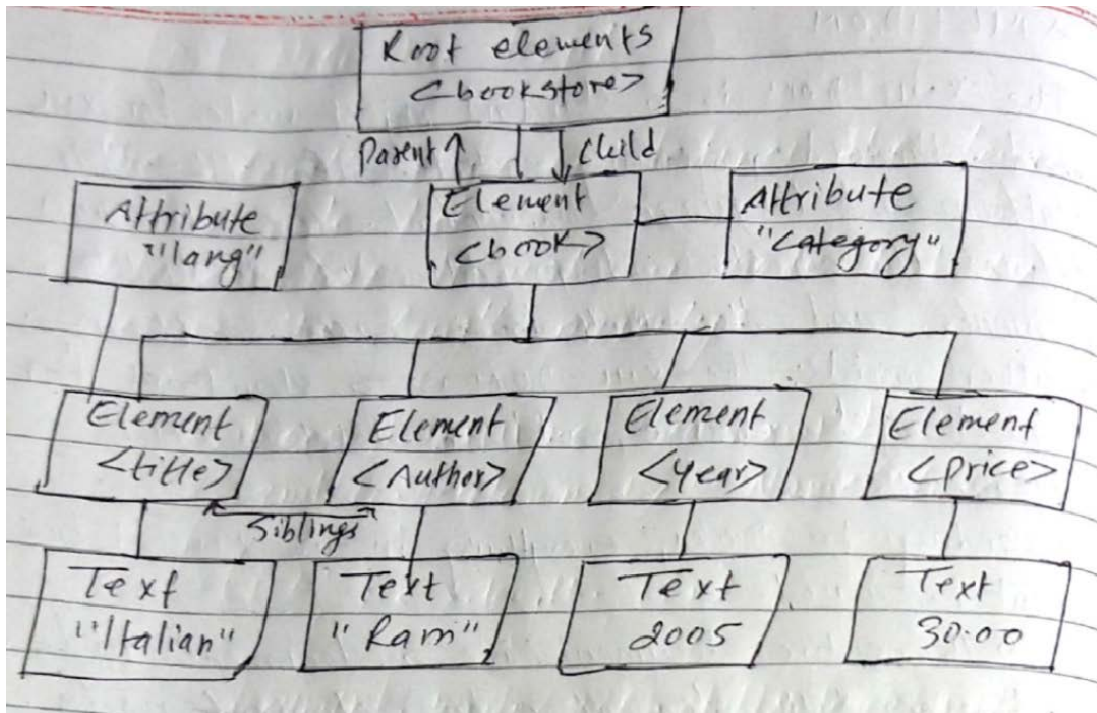 Root elements
<bookstore>
Parent
Child
Attribute
"lang"
Element
<book>
Attribute
"Category"
Element
<title>
Element
<Author>
Element
<year>
Element
<price>
Siblings
Text
"Italian"
Text
"Ram"
Text
2005
Text
30:00